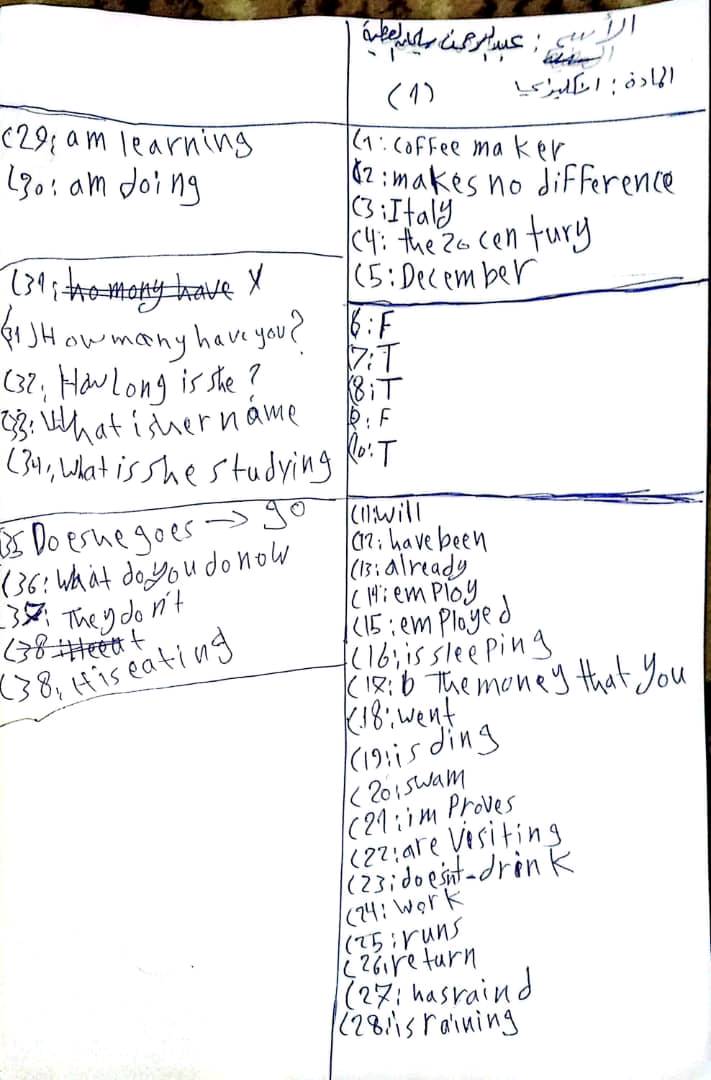 الأسم : عبدالرحمن
المادة : انكليزي
(1)
(1: coffee maker
(2 : makes no difference
(3 : Italy
(4 : the 20 century
(5 : December
6 : F
7 : T
(8 : T
9 : F
10 : T
(11: will
(12 : have been
(13 : already
(14 : em Ploy
(15 : em Ployed
(16 : is sleeping
(17 : b The money that you
(18 : went
(19 : is ding
(20 : swam
(21 : im Proves
(22 : are Visiting
(23 : doesnt-drink
(24 : work
(25 : runs
(26 : return
(27 : hasraind
(28 : is raining
(29 : am learning
(30 : am doing
(31 : ho many have X
(31) How many have you?
(32, How long is she ?
33: What is her name
(34, What is she studying
35 Does he goes → go
(36 : What do you do now
37: They don't
(38
(38, It is eating